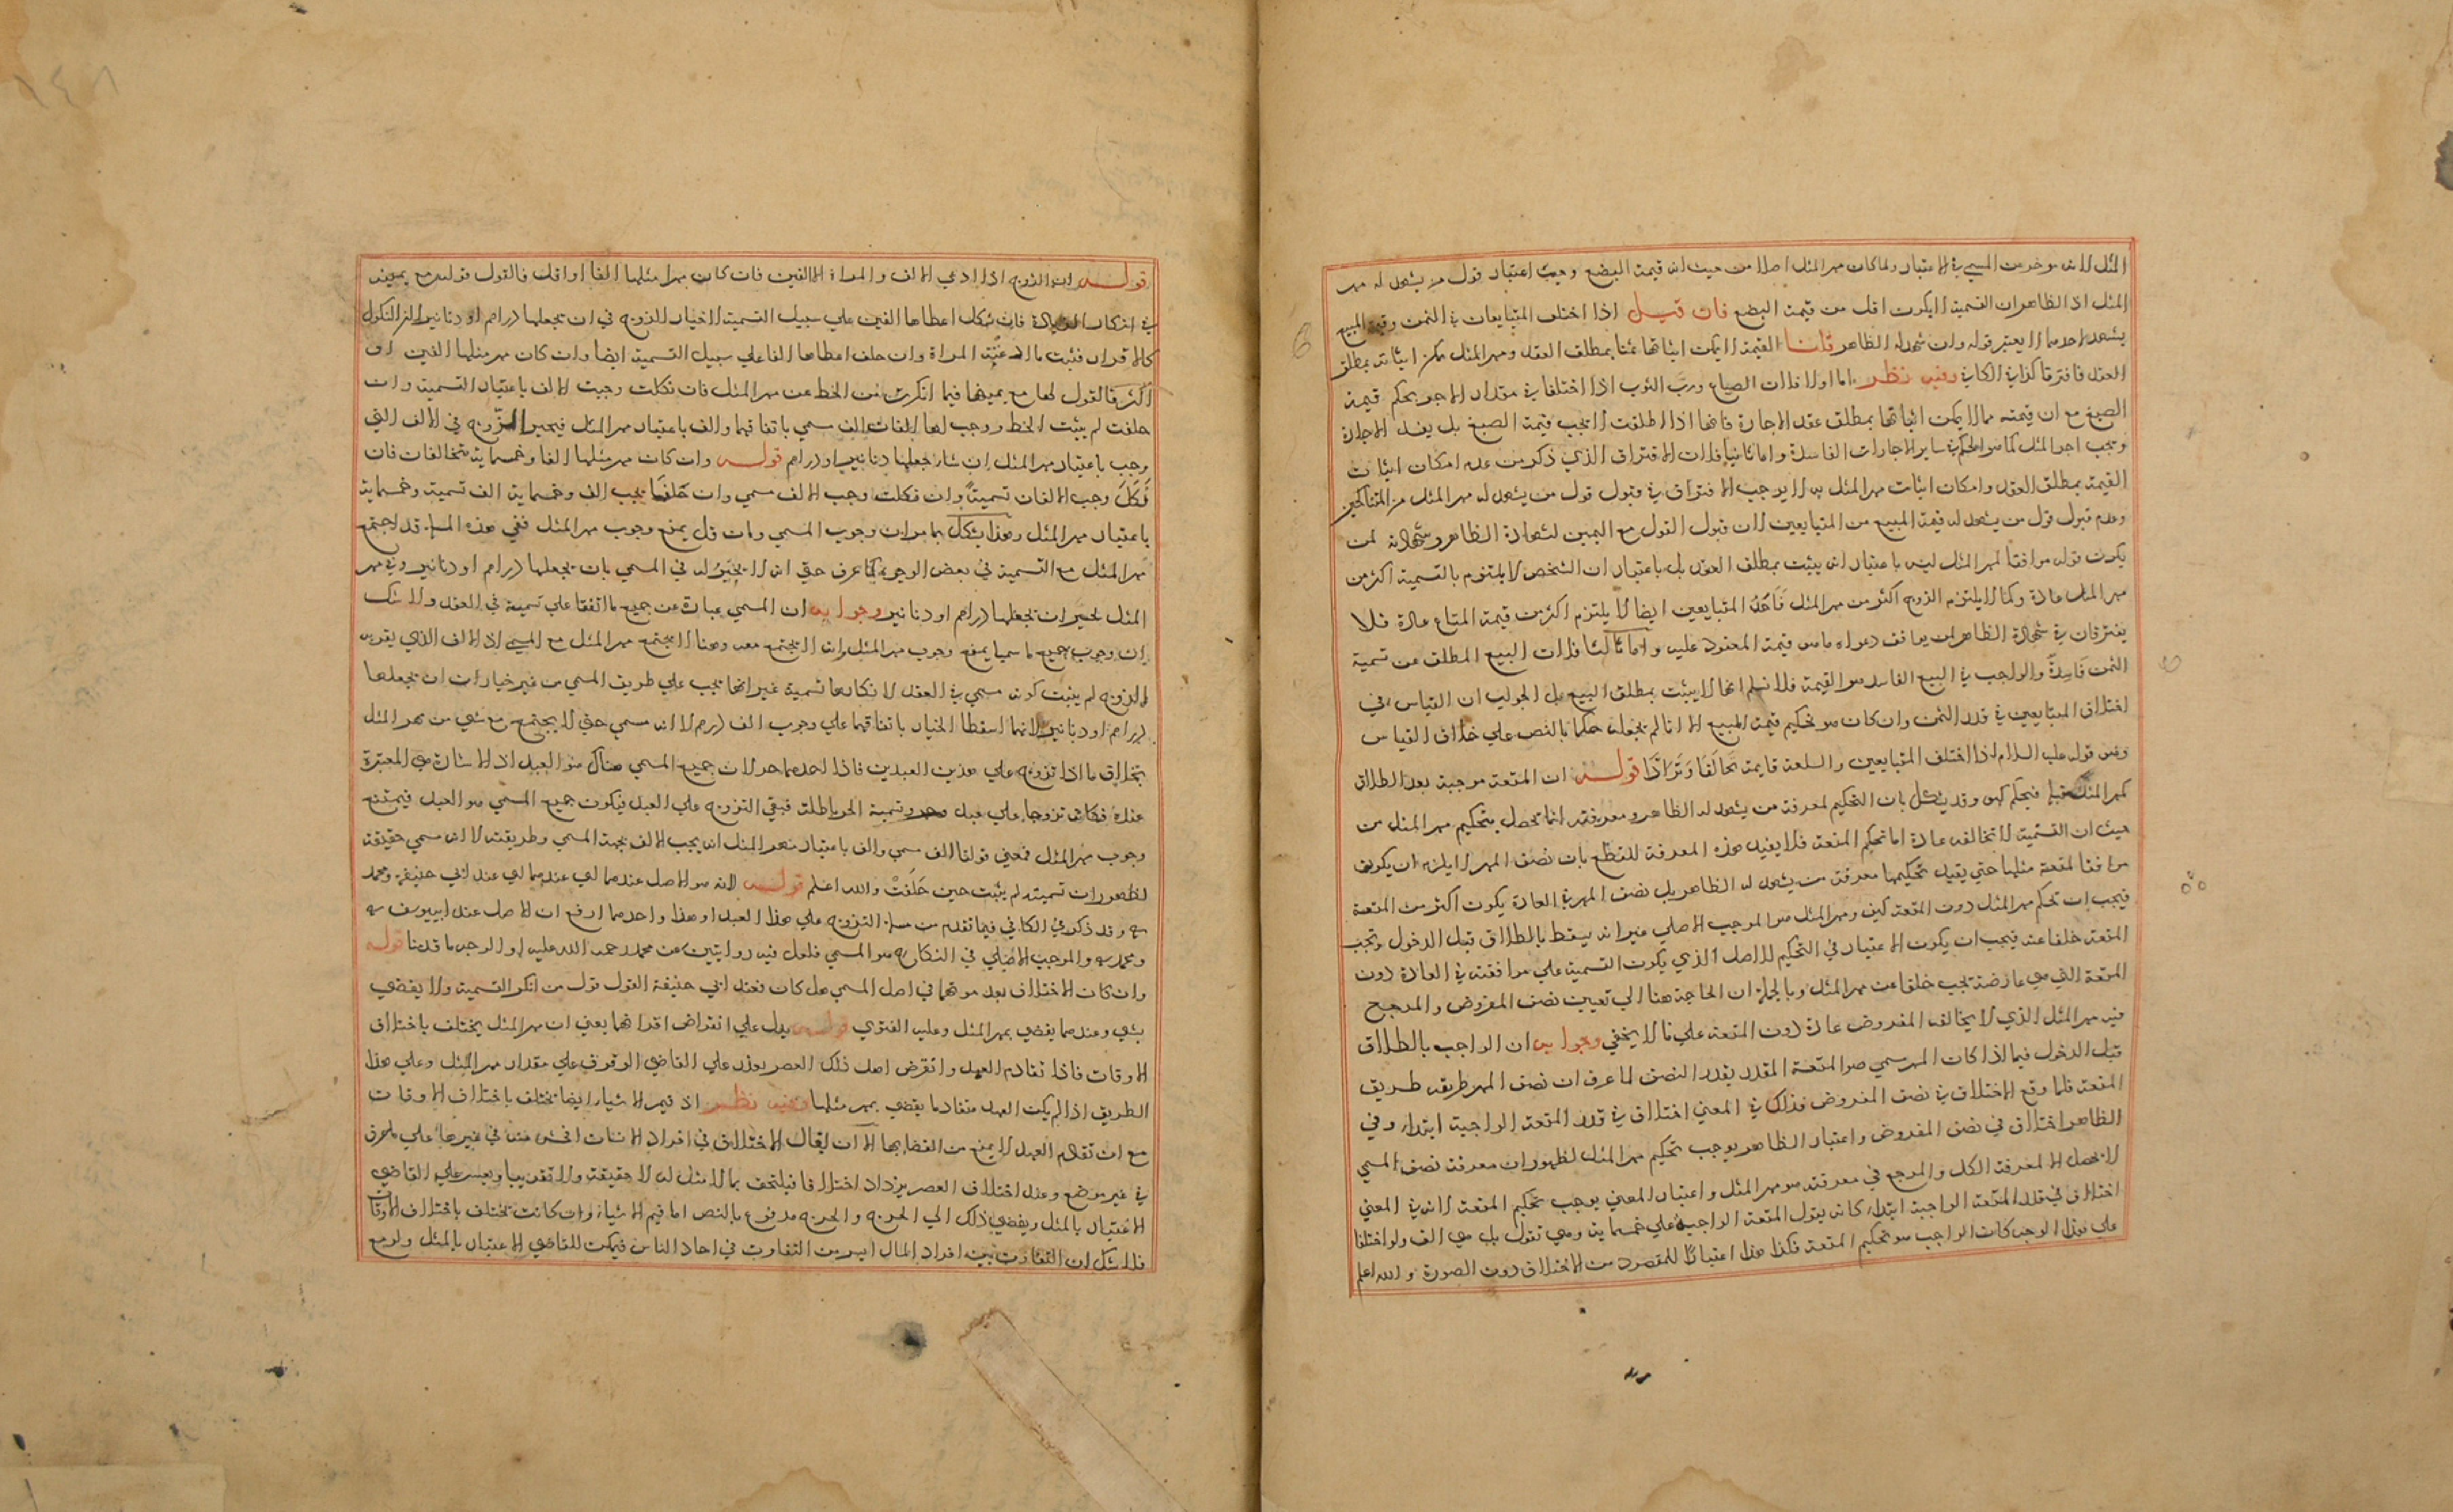 المثل لانه موخر من المسمي في الاعتبار ولما كان مهر المثل اصلا من حيث انه قيمة البضع وجب اعتبار قول من يشهد له مهر
المثل اذ الظاهر ان التسمية لا يكون اقل من قيمة البضع فان قيل اذا اختلف المتبايعان في الثمن وقيمة المبيع
يشهد لاحدهما لا يعتبر قوله وان شهد له الظاهر قلنا القيمة لا يمكن اثباتها ثمنا بمطلق العقد ومهر المثل يمكن اثباته بمطلق
العقد فافترقا كذا في الكافي وفيه نظر اما اولا فلان الصباغ ورب الثوب اذا اختلفا في مقدار الاجر يحكم قيمة
الصبغ مع ان قيمته مما لا يمكن اثباتها بمطلق عقد الاجارة فانها اذا اطلقت لا تجب قيمة الصبغ بل يفسد الاجارة
وتجب اجر المثل كما هو الحكم في ساير الاجارات الفاسدة واما ثانيا فلان الافتراق الذي ذكر من عدم امكان اثبات
القيمة بمطلق العقد وامكان اثبات مهر المثل به لا يوجب الافتراق في قبول قول من يشهد له مهر المثل من المتناكحين
وعدم قبول قول من يشهد له قيمة المبيع من المتبايعين لان قبول القول مع اليمين لشهادة الظاهر وشهادته لمن
يكون قوله موافقا لمهر المثل ليس باعتبار انه يثبت بمطلق العقد بل باعتبار ان الشخص لا يلتزم بالتسمية اكثر من
مهر المثل عادة وكما لا يلتزم الزوج اكثر من مهر المثل فاحد المتبايعين ايضا لا يلتزم اكثر من قيمة المتاع عادة فلا
يفترقان في شهادة الظاهر لمن يوافق دعواه ما هو قيمة المعقود عليه واما ثالثا فلان البيع المطلق عن تسمية
الثمن فاسد والواجب في البيع الفاسد هو القيمة فلا نسلم انها لا يثبت بمطلق البيع بل الجواب ان القياس في
اختلاف المتبايعين في قدر الثمن وان كان هو تحكيم قيمة المبيع الا انا لم نجعله حكما بالنص علي خلاف القياس
وهو قوله عليه السلام اذا اختلف المتبايعين والسلعة قايمة تحالفا وترادا قوله ان المتعة موجبة بعد الطلاق
كمهر المثل قبله فيحكم كهو وقد يشكل بان التحكيم لمعرفة من يشهد له الظاهر ومعرفته انما تحصل بتحكيم مهر المثل من
حيث ان التسمية لا تخالفه عادة اما تحكيم المتعة فلا يفيد هذه المعرفة للقطع بان نصف المهر لا يلزم ان يكون
موافقا لمتعة مثلها حتي يفيد تحكيمها معرفة من يشهد له الظاهر بل نصف المهر في العادة يكون اكثر من المتعة
فيجب ان تحكم مهر المثل دون المتعة كيف ومهر المثل هو الموجب الاصلي غير انه يسقط بالطلاق قبل الدخول وتجب
المتعة خلفا عنه فيجب ان يكون الاعتبار في التحكيم للاصل الذي يكون التسمية علي موافقته في العادة دون
المتعة التي هي عارضة تجب خلفا عن مهر المثل وبالجملة ان الحاجة هنا الي تعيين نصف المفروض والمرجح
فيه مهر المثل الذي لا يخالف المفروض عادة دون المتعة علي ما لا يخفي وجوابه ان الواجب بالطلاق
قبل الدخول فيما اذا كان المهر سمي هو المتعة المقدر بقدر النصف لما عرف ان نصف المهر طريقه طريق
المتعة فلما وقع الاختلاف في نصف المفروض فذلك في المعني اختلاف في قدر المتعة الواجبة ابتداء وفي
الظاهر اختلاف في نصف المفروض واعتبار الظاهر يوجب تحكيم مهر المثل لظهور ان معرفة نصف المسمي
لا تحصل الا لمعرفة الكل والمرجع في معرفته هو مهر المثل واعتبار المعني يوجب تحكيم المتعة لانه في المعني
اختلاف في قدر المتعة الواجبة ابتداء كانه يقول المتعة الواجبة علي خمسماية وهي تقول بل هي الف ولو اختلفا
علي هذا الوجه كان الواجب هو تحكيم المتعة فكذا هذا اعتبارا للمقصود من الاختلاف دون الصورة والله اعلم
قوله ان الزوج اذا ادعي الالف والمراة الالفين فان كان مهر مثلها الفا او اقل فالقول قوله مع يمينه
في انكار الزيادة فان نكل اعطاها الفين علي سبيل التسمية لا خيار للزوج في ان يجعلها دراهم او دنانير لان النكول
كالاقرار فثبت ما ادعته المراة وان حلف اعطاها الفا علي سبيل التسمية ايضا وان كان مهر مثلها الفين او
اكثر فالقول لها مع يمينها فيما انكرت من الحط عن مهر المثل فان نكلت وجبت الالف باعتبار التسمية وان
حلفت لم يثبت الحط ووجب لها الفان الف سمي باتفاقهما والف باعتبار مهر المثل فيخير الزوج في الالف التي
وجب باعتبار مهر المثل ان شاء جعلها دنانير او دراهم قوله وان كان مهر مثلها الفا وخمسماية تحالفا فان
نكل وجب الالفان تسمية وان نكلت وجب الالف مسمي وان حلفا يجب الف وخمسماية الف تسمية وخمسماية
باعتبار مهر المثل وهذا يشكل بما مر ان وجوب المسمي وان قل يمنع وجوب مهر المثل ففي هذه المسئلة قد اجتمع
مهر المثل مع التسمية في بعض الوجوه كما عرف حتي انه لا يخير له في المسمي بان يجعلها دراهم او دنانير وفي مهر
المثل يخير ان يجعلها دراهم او دنانير وجوابه ان المسمي عبارة عن جميع ما اتفقا علي تسمية في العقد ولا شك
ان وجوب جميع ما سميا يمنع وجوب مهر المثل وانه لا يجتمع معه وهنا لا يجتمع مهر المثل مع المسمي اذ الالف الذي يقر به
الزوج لم يثبت كونه مسمي في العقد لانكارها تسمية غير انها يجب علي طريق المسمي من غير خيار ان يجعلها
دراهم او دنانير لانهما اسقطا الخيار باتفاقهما علي وجوب الف درهم لا انه مسمي حتي لا يجتمع مع شي من مهر المثل
بخلاف ما اذا تزوج علي هذين العبدين فاذا احدهما حر لان جميع المسمي هناك هو العبد اذ الاشارة هي المعتبرة
عنده فكانه تزوجها علي عبد وحر وتسمية الحر باطلة فبقي التزوج علي العبد فيكون جميع المسمي هو العبد فيمتنع
وجوب مهر المثل فمعني قولنا الف سمي والف باعتبار مهر المثل انه يجب الالف بجهة المسمي وطريقته لا انه سمي حقيقة
لظهور ان تسميته لم يثبت حين حلفت والله اعلم قوله لانه هو الاصل عندهما اي عندهما اي عند ابي حنيفة ومحمد
وقد ذكر في الكافي فيما تقدم من مسئلة التزوج علي هذا العبد او هذا واحدهما ارفع ان الاصل عند ابييوسف
ومحمد والموجب الاصلي في النكاح هو المسمي فلعل فيه روايتين عن محمد رحمه الله عليه او الوجه ما قدمنا قوله
وان كان الاختلاف بعد موتهما في اصل المسمي هل كان فعند ابي حنيفة القول قول من انكر التسمية ولا يقضي
بشي وعندهما يقضي بمهر المثل وعليه الفتوي قوله يدل علي انقراض اقرانهما يعني ان مهر المثل يختلف باختلاف
الاوقات فاذا تقادم العهد وانقرض اهل ذلك العصر يعذر علي القاضي الوقوف علي مقدار مهر المثل وعلي هذا
الطريق اذا لم يكن العهد متقادما يقضي بمهر مثلها وفيه نظر اذ قيم الاشياء ايضا تختلف باختلاف الاوقات
مع ان تقادم العهد لا يمنع من القضا بها الا ان يقال الاختلاف في افراد الانسان افحش منه في غيرها علي ما عرف
في غير موضع وعند اختلاف العصر يزداد اختلافا فيلتحق بما لا مثل له لا حقيقة ولا تقريبا ويعسر علي القاضي
الاعتبار بالمثل ويفضي ذلك الي الحرج والحرج مدفوع بالنص اما قيم الاشياء وان كانت تختلف باختلاف الاوقات
فلا شك ان التفاوت بين افراد المال ايسر من التفاوت في احاد الناس فيمكن للقاضي الاعتبار بالمثل ولو مع